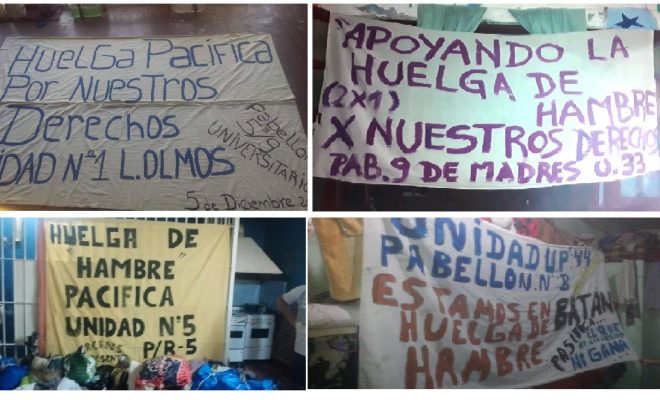 HUELGA PACIFICA
POR NUESTROS
DERECHOS
UNIDAD Nº1 L.OLMOS
Pabellon
5 y 9
UNIVERSITARIO
5 de Diciembre
"APOYANDO LA
HUELGA DE
(2X1) HAMBRE
X NUESTROS DERECHOS
PAB. 9 DE MADRES U.33
HUELGA DE
"HAMBRE"
PACIFICA
UNIDAD Nº5
P/R-5
UNIDAD UP:44
PABELLON.Nº B
ESTAMOS EN
HUELGA DE
HAMBRE
BATAN
EL QUE
NI GANA